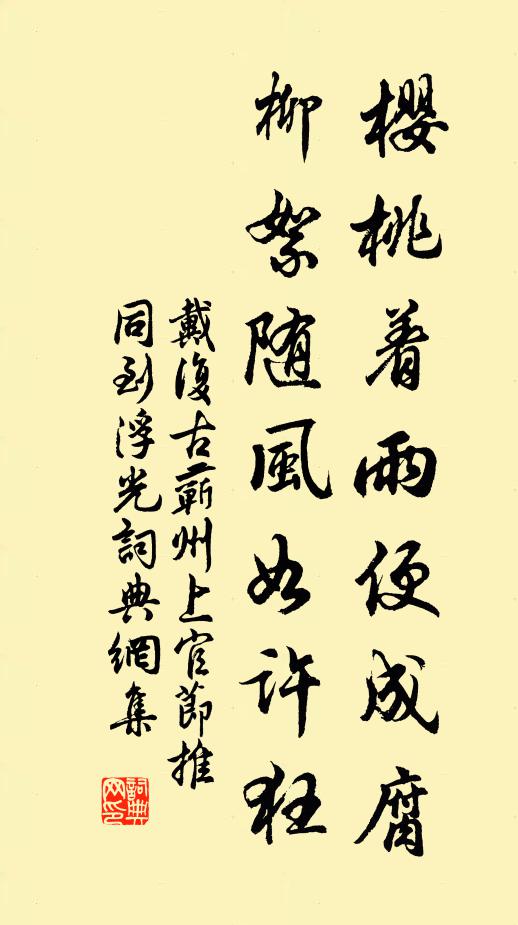 櫻桃着雨便成腐
柳絮随風如許狂
戴復古蘄州上官節推
同到浮光詞典網集
詞典网印